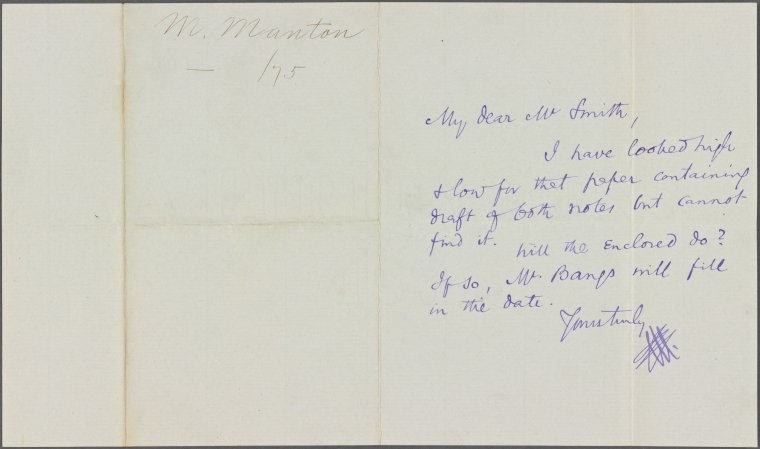 M. Manton
— /75
My dear Mr Smith,
I have looked high
& low for that paper containing
draft of both notes but cannot
find it. Will the enclosed do?
If so, Mr. Bangs will fill
in the date.
Yours truly